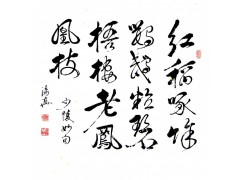 红稻啄馀
鹦鹉粒碧
梧栖老凤
凤枝
少陵妙句